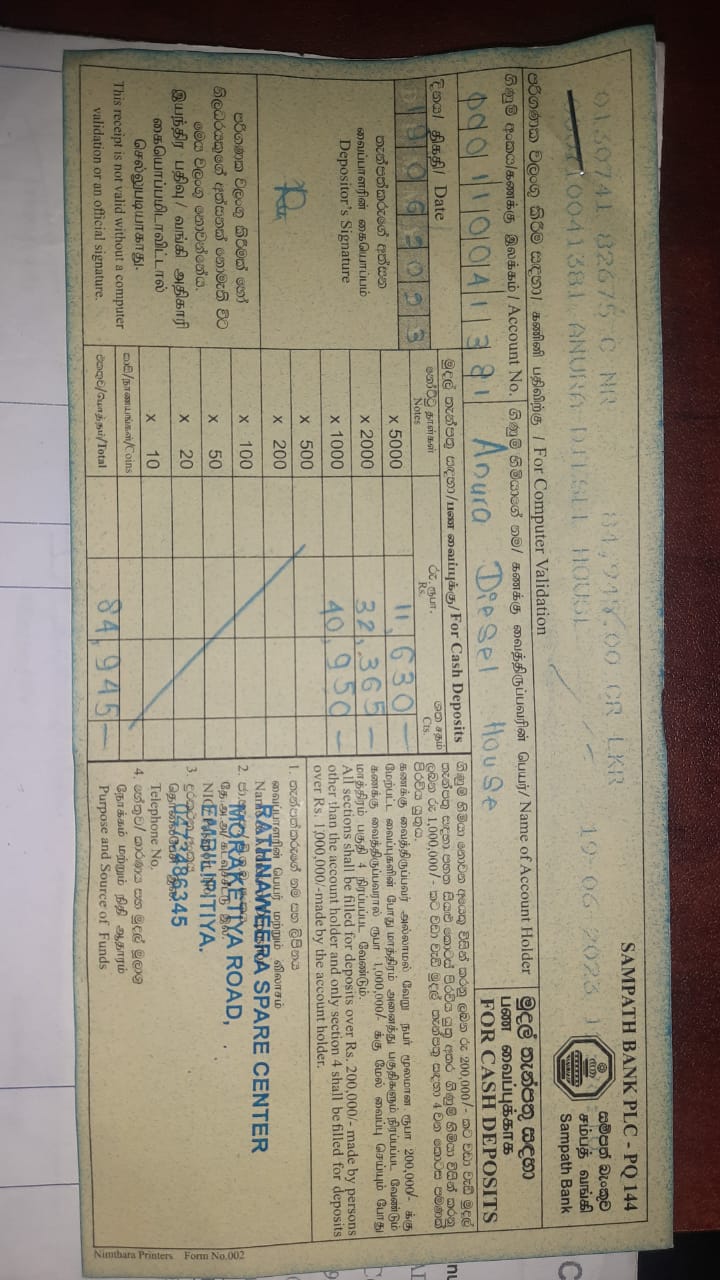 SAMPATH BANK PLC - PQ 144
සම්පත් බැංකුව
சம்பத் வங்கி
Sampath Bank
82675 C NR
84,945.00 CR LKR
19-06-2023
100041381 ANURA DIESEL HOUSE
පරිගණක වලංගු කිරීම සඳහා / கணினி பதிவிற்கு / For Computer Validation
මුදල් තැන්පතු සඳහා
பண வைப்புக்காக
FOR CASH DEPOSITS
ගිණුම් අංකය/கணக்கு இலக்கம் / Account No.
ගිණුම් හිමියාගේ නම/ கணக்கு வைத்திருப்பவரின் பெயர்/ Name of Account Holder
000110041381
Anura Diesel House
දිනය/ திகதி/ Date
19062023
මුදල් තැන්පතු සඳහා/பண வைப்புக்கு/ For Cash Deposits
නෝට්ටු தாள்கள்
Notes
රු. ரூபா.
Rs.
ශත சதம்
Cts.
x 5000 11,630 —
x 2000 32,365 —
x 1000 40,950 —
x 500
x 200
x 100
x 50
x 20
x 10
කාසි/நாணயங்கள்/Coins
එකතුව/மொத்தம்/Total 84,945 —
තැන්පත්කරුගේ අත්සන
வைப்பாளரின் கையொப்பம்
Depositor's Signature
පරිගණක වලංගු කිරීමක් හෝ
නිලධරයකුගේ අත්සනක් නොමැති විට
මෙය වලංගු නොවන්නේය.
இயந்திர பதிவு/ வங்கி அதிகாரி
கையொப்பமிடாவிட்டால்
செல்லுபடியாகாது.
This receipt is not valid without a computer
validation or an official signature.
கணக்கு வைத்திருப்பவர் அல்லாமல் வேறு நபர் மூலமான ரூபா 200,000/- க்கு
மேற்பட்ட வைப்புகளின் போது மாத்திரம் அனைத்து பகுதிகளும் நிரப்பப்பட வேண்டும்
கணக்கு வைத்திருப்பவரால் ரூபா 1,000,000/- க்கு மேல் வைப்பு செய்யும் போது
மாத்திரம் பகுதி 4 நிரப்பப்பட வேண்டும்.
All sections shall be filled for deposits over Rs. 200,000/- made by persons
other than the account holder and only section 4 shall be filled for deposits
over Rs. 1,000,000/-made by the account holder.
1. තැන්පත්කරුගේ නම සහ ලිපිනය
வைப்பாளரின் பெயர் மற்றும் விலாசம்
RATHNAWEERA SPARE CENTER
2.
MORAKETIYA ROAD,
EMBILIPITIYA.
3.
0472486345
Telephone No.
4. හේතුව/ කාරණය සහ මුදල් මූලාශ්‍ර
நோக்கம் மற்றும் நிதி ஆதாரம்
Purpose and Source of Funds
Nimthara Printers Form No.002